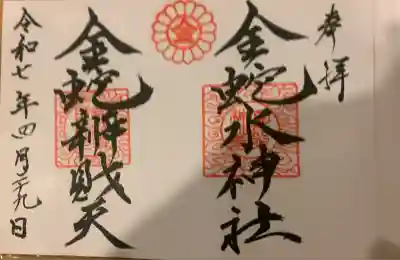 奉拝
金蛇水神社
金蛇辨財天
令和七年四月二十九日